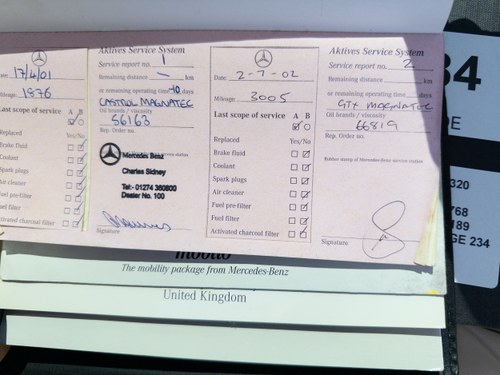 17/4/01
Mileage 1876
Last scope of service A B
Replaced Yes/No
Brake fluid
Coolant
Spark plugs
Air cleaner
Fuel pre-filter
Fuel filter
Activated charcoal filter
Aktives Service System
Service report no. 1
Remaining distance — km
or remaining operating time days
CASTROL MAGNATEC
Oil brands / viscosity
56163
Rep. Order no.
Mercedes Benz
Charles Sidney
Tel:- 01274 360800
Dealer No. 100
Signature
Date 2-7-02
Mileage 3005
Last scope of service A B
Replaced Yes/No
Brake fluid
Coolant
Spark plugs
Air cleaner
Fuel pre-filter
Fuel filter
Activated charcoal filter
Aktives Service System
Service report no. 2
Remaining distance km
or remaining operating time days
GTX MAGNATEC
Oil brands / viscosity
66819
Rep. Order no.
Signature
The mobility package from Mercedes-Benz
United Kingdom
34
DE
320
768
189
GE 234